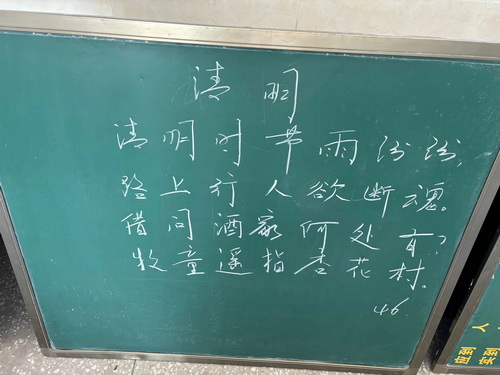 清明
清明时节雨纷纷,
路上行人欲断魂。
借问酒家何处有?
牧童遥指杏花村。
46
人
应到
实到